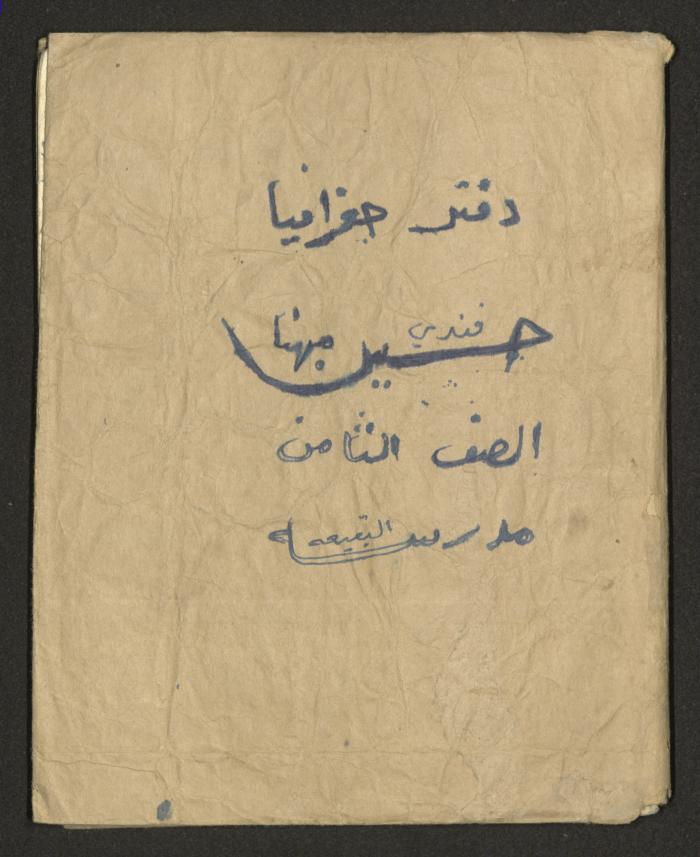 دفتر جغرافيا
حسين فندي مهنا
الصف الثامن
مدرسة البقيعه